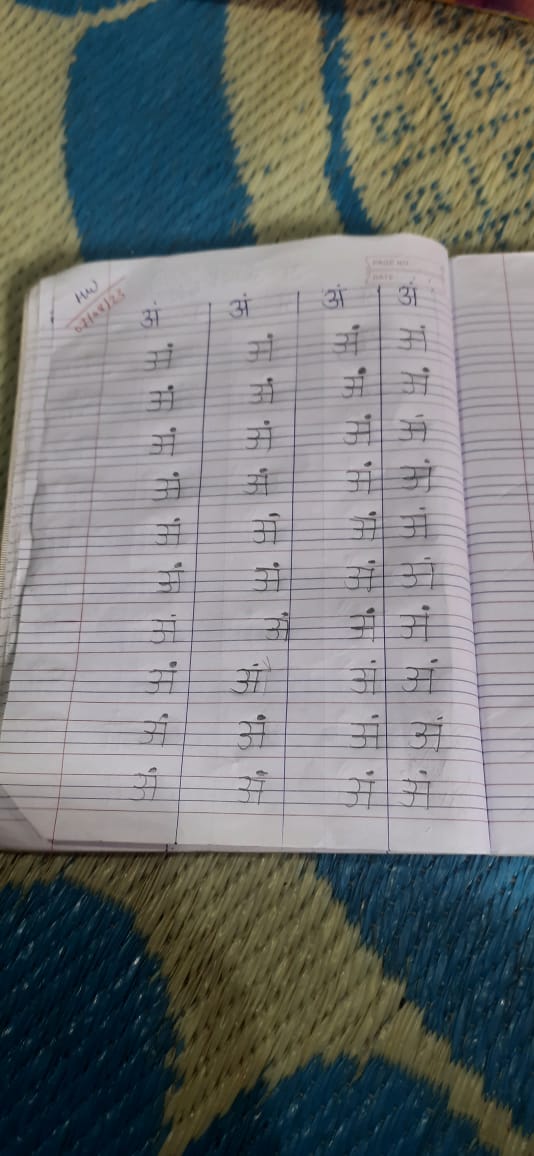 PAGE NO.
DATE
HW
07/08/23
अं अं अं अं
अं अं अं अं
अं अं अं अं
अं अं अं अं
अं अं अं अं
अं अं अं अं
अं अं अं अं
अं अं अं अं
अं अं अं अं
अं अं अं अं
अं अं अं अं